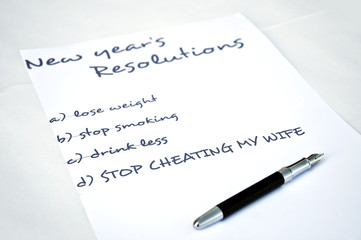 New year's
Resolutions
a) lose weight
b) stop smoking
c) drink less
d) STOP CHEATING MY WIFE